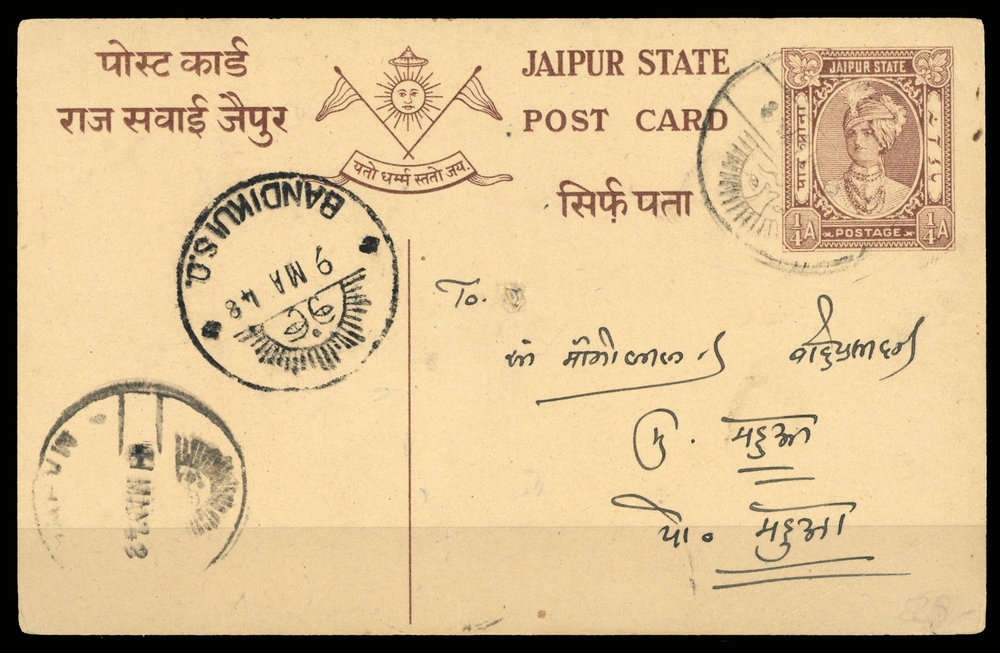 पोस्ट कार्ड
राज सवाई जैपुर
यतो धर्म्म स्ततो जय.
JAIPUR STATE
POST CARD
सिर्फ़ पता
JAIPUR STATE
पाव आना
POSTAGE
1/4 A 1/4 A
BANDIKUI S.O.
9 MA 48
MAY 48
To.
मु. महुआ
पो० महुआ